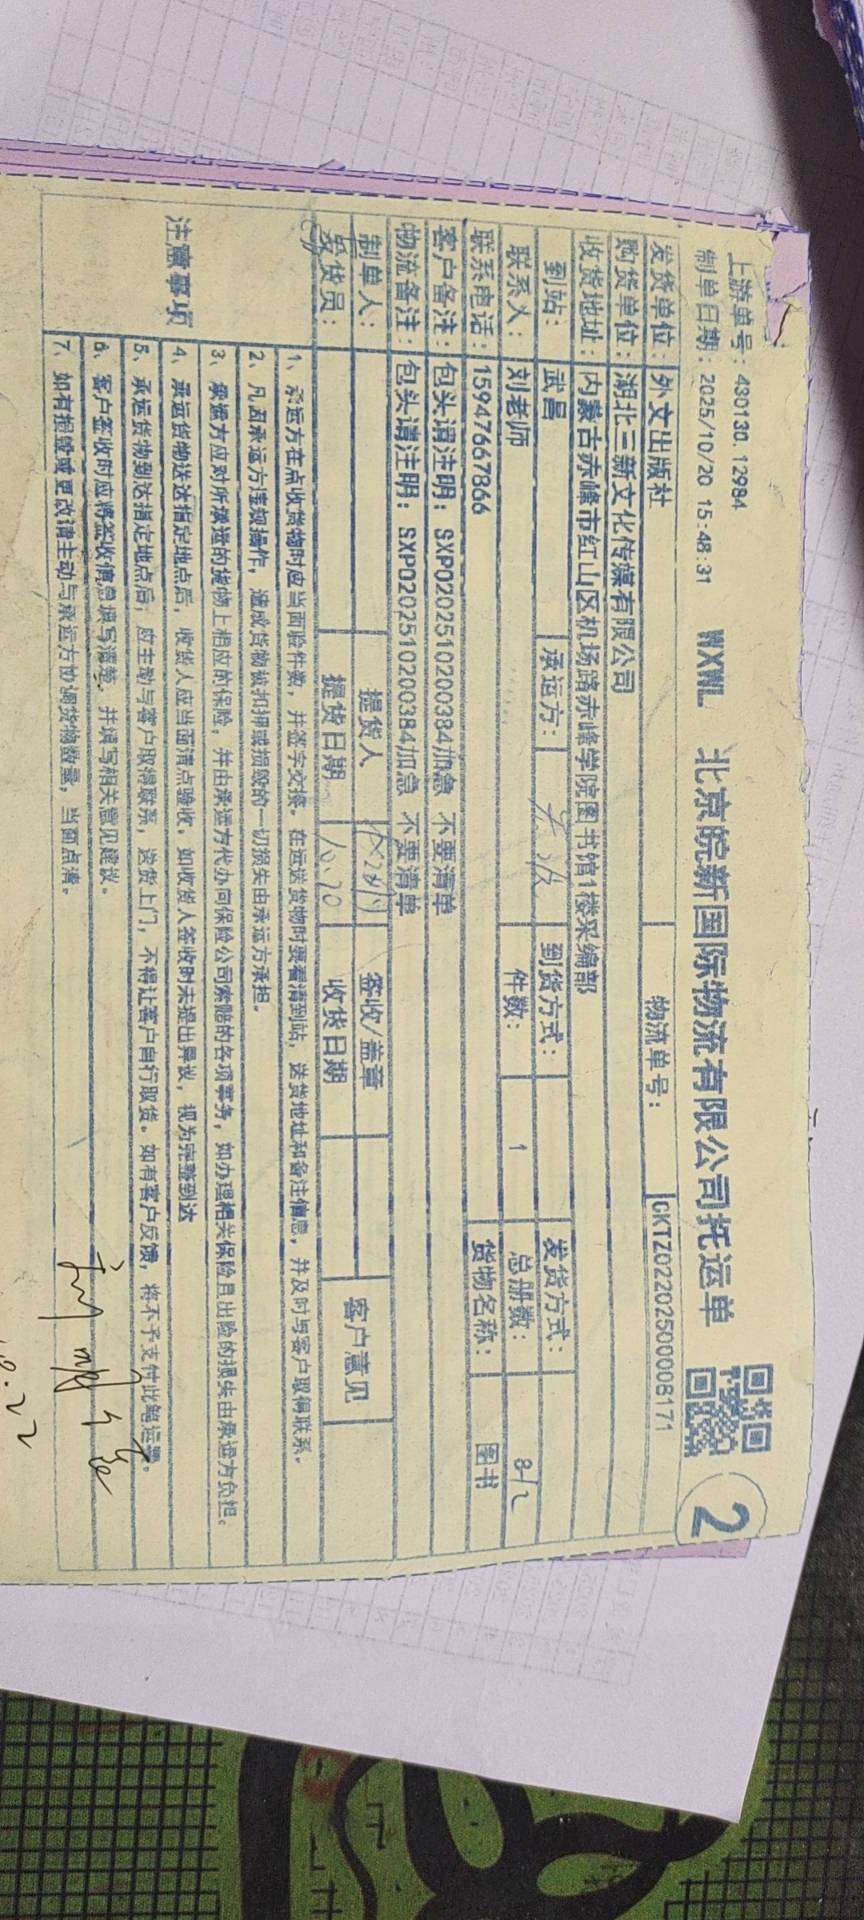 上游单号：430130.12984
制单日期：2025/10/20 15:48:31 WXWL 北京皖新国际物流有限公司托运单 2
发货单位：外文出版社 物流单号：CKTZ0220250000B171
购货单位：湖北三新文化传媒有限公司
收货地址：内蒙古赤峰市红山区机场路赤峰学院图书馆1楼采编部
到站：武昌 承运方： 到货方式： 发货方式：
联系人：刘老师 件数：1 总册数：8/2
联系电话：15947667866 货物名称：图书
客户备注：包头请注明：SXP0202510200384加急 不要清单
物流备注：包头请注明：SXP0202510200384加急 不要清单
制单人： 提货人 签收/盖章 客户意见
发货员： 提货日期 10.20 收货日期
注意事项
1、承运方在点收货物时应当面验件数，并签字交接。在运送货物时要看清到站，送货地址和备注信息，并及时与客户取得联系。
2、凡因承运方违规操作，造成货物被扣押或损毁的一切损失由承运方承担。
3、承运方应对所承运的货物上相应的保险，并由承运方代办向保险公司索赔的各项事务，如办理相关保险且出险的损失由承运方负担。
4、承运货物送达指定地点后，收货人应当面清点验收，如收货人签收时未提出异议，视为完整到达
5、承运货物到达指定地点后，应主动与客户取得联系，送货上门，不得让客户自行取货。如有客户反馈，将不予支付此趟运费。
6、客户签收时应将签收信息填写清楚，并填写相关意见建议。
7、如有损毁或更改请主动与承运方协调货物数量，当面点清。